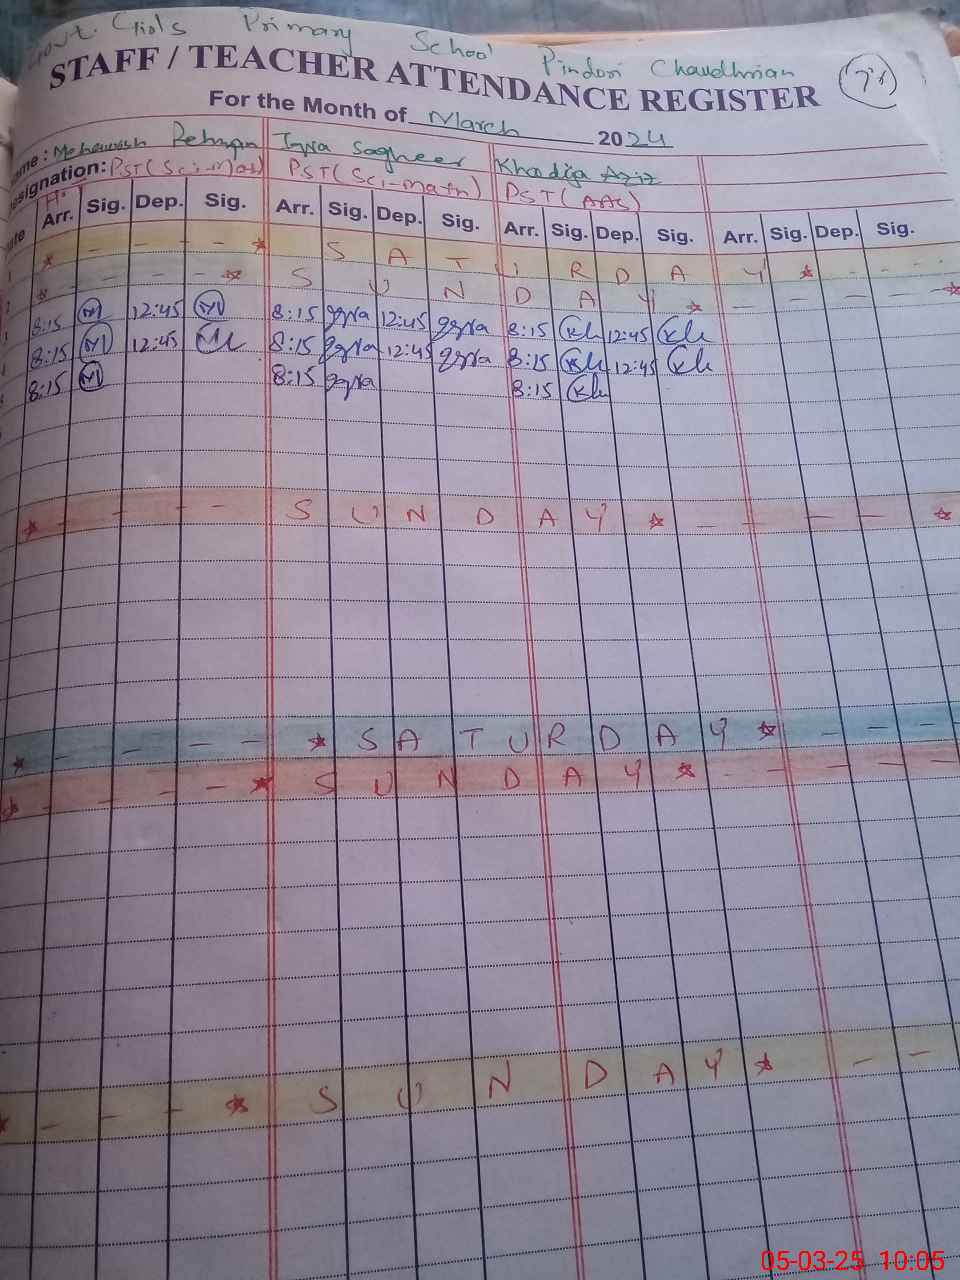 Govt. Girls Primary School Pindori Chaudhrian
STAFF / TEACHER ATTENDANCE REGISTER
For the Month of March 2024
Name: Mehawish Rehman Iqra Sagheer Khadija Aziz
Designation: PST(Sci-Mat) PST(Sci-math) PST(AAS)
Arr. Sig. Dep. Sig. Arr. Sig. Dep. Sig. Arr. Sig. Dep. Sig. Arr. Sig. Dep. Sig.
* - - - - * S A T U R D A Y * - - - -
* - - - - * S U N D A Y * - - - - *
8:15 M 12:45 M 8:15 Iqra 12:45 Iqra 8:15 Kh 12:45 Kh
8:15 M 12:45 M 8:15 Iqra 12:45 Iqra 8:15 Kh 12:45 Kh
8:15 M 8:15 Iqra 8:15 Kh
* - - - - S U N D A Y * - - - - *
* - - - - * S A T U R D A Y * - - - -
* - - - - * S U N D A Y * - - - - -
* - - - * S U N D A Y * - -
05-03-25 10:05